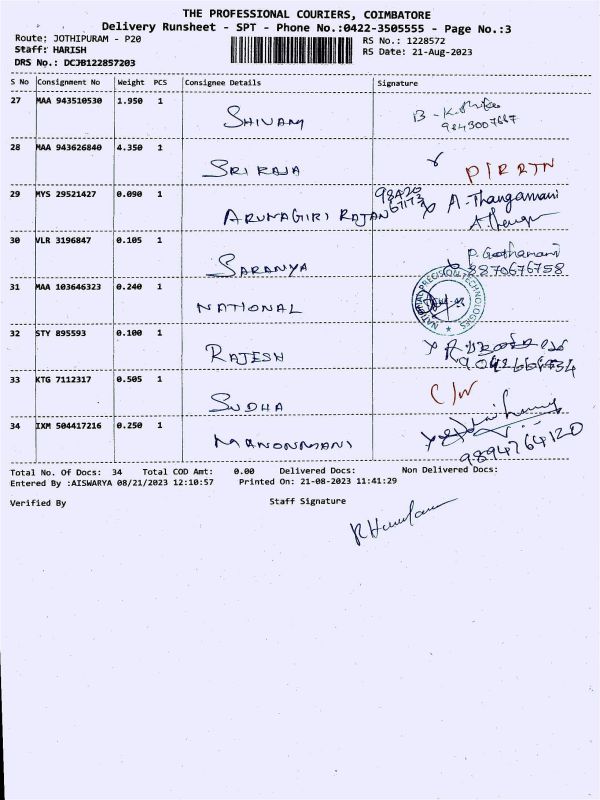 THE PROFESSIONAL COURIERS, COIMBATORE
Delivery Runsheet - SPT - Phone No.:0422-3505555 - Page No.:3
Route: JOTHIPURAM - P20
RS No.: 1228572
Staff: HARISH
RS Date: 21-Aug-2023
DRS No.: DCJB122857203
S No Consignment No Weight PCS Consignee Details Signature
27 MAA 943510530 1.950 1 SHIVAM B-K
9843007667
28 MAA 943626840 4.350 1 SRI RAJA P/R RTN
29 MYS 29521427 0.090 1 ARUNAGIRI RAJAN 98420 67173 A.Thangamani
30 VLR 3196847 0.105 1 SARANYA P.Goothamani
8870676758
31 MAA 103646323 0.240 1 NATIONAL NATIONAL PRECISION TECHNOLOGIES
32 STY 895593 0.100 1 RAJESH
33 KTG 7112317 0.505 1 SUDHA C/W
34 IXM 504417216 0.250 1 MANONMANI
9894764120
Total No. Of Docs: 34 Total COD Amt: 0.00 Delivered Docs: Non Delivered Docs:
Entered By :AISWARYA 08/21/2023 12:10:57 Printed On: 21-08-2023 11:41:29
Verified By Staff Signature